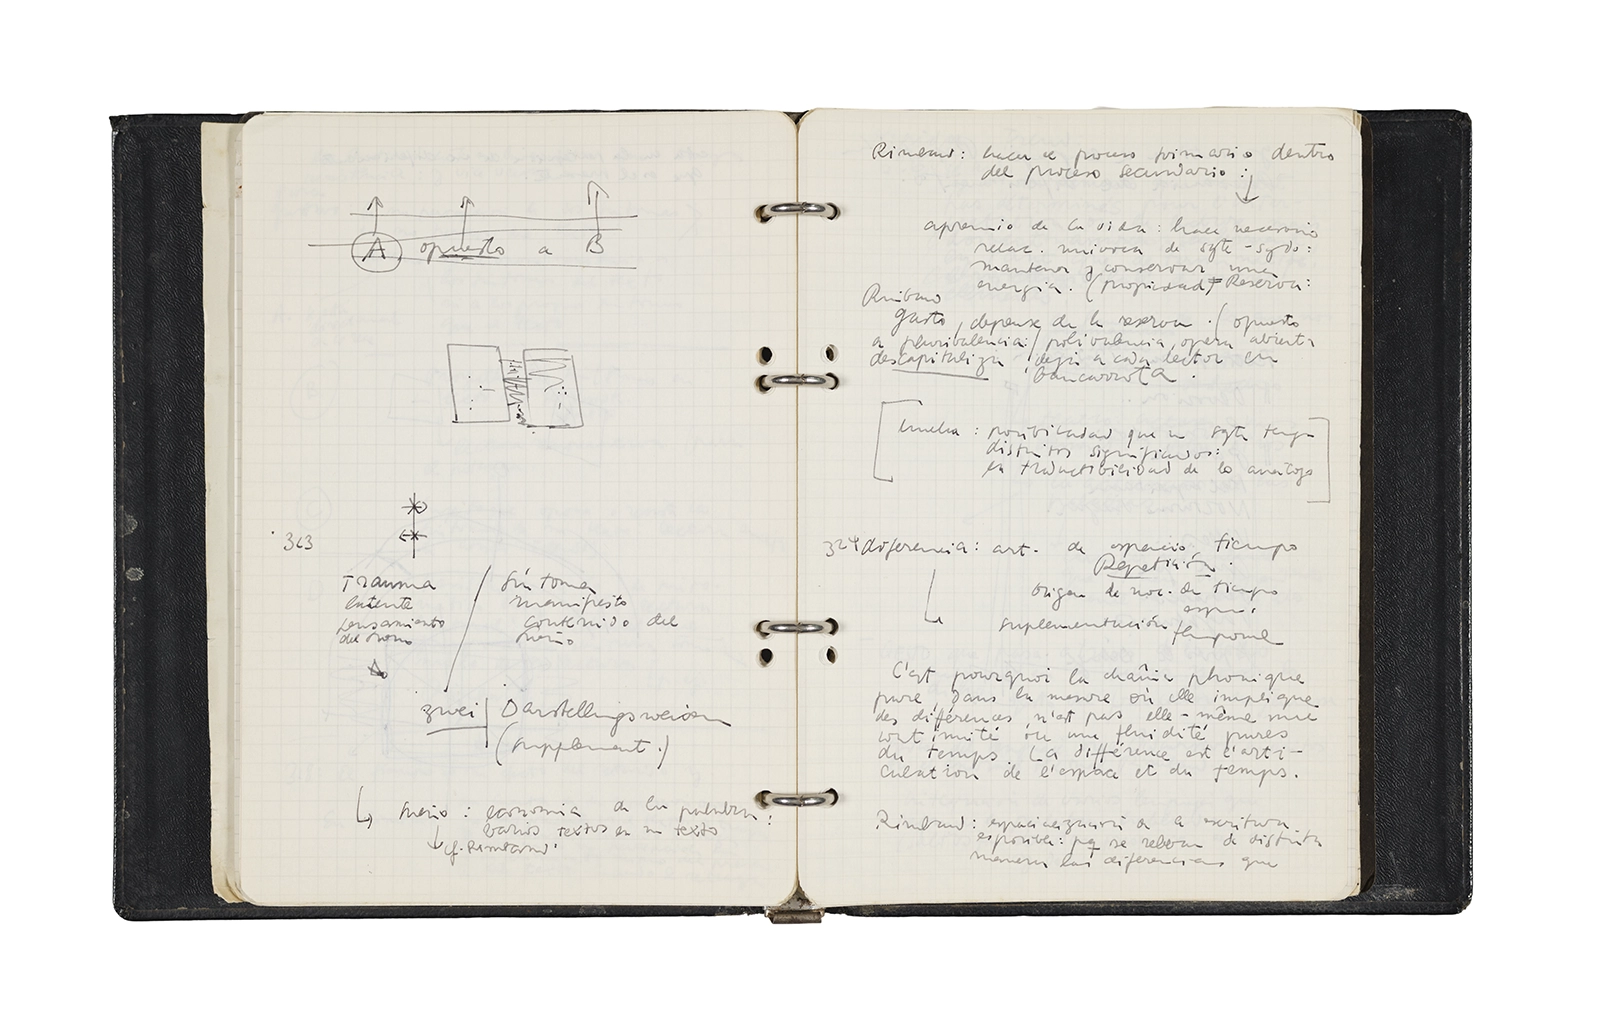 A opuesto a B
363
Trauma / síntoma
latente manifiesto
pensamiento contenido del
del sueño sueño
zwei | Darstellungsweisen
(supplement.)
sueño : economía de la palabra:
varios textos en un texto
cf. Rimbaud
Rimbaud: hacer el proceso primario dentro
del proceso secundario :
apremio de la vida: hace necesario
relac. unívoca de sgte - sgdo:
mantener y conservar una
energía. (propiedad) Reserva:
Rimbaud
gasto, dépense de la reserva. (opuesto
a plurivalencia / polivalencia, opera abierta
descapitaliza, deja a cada lector en
bancarrota.
huella : posibilidad que un sgte tenga
distintos significados:
la traductibilidad de lo análogo
324 diferencia: art. de espacio, tiempo
Repetición.
origen de noc. de tiempo
espac.
suplementación temporal
C'est pourquoi la chaîne phonique
pure, dans la mesure où elle implique
des différences, n'est pas elle-même une
continuité ou une fluidité pures
du temps. La différence est l'arti-
culation de l'espace et du temps.
Rimbaud: espacialización a escritura
: pq se relevan de distinta
manera las diferencias que